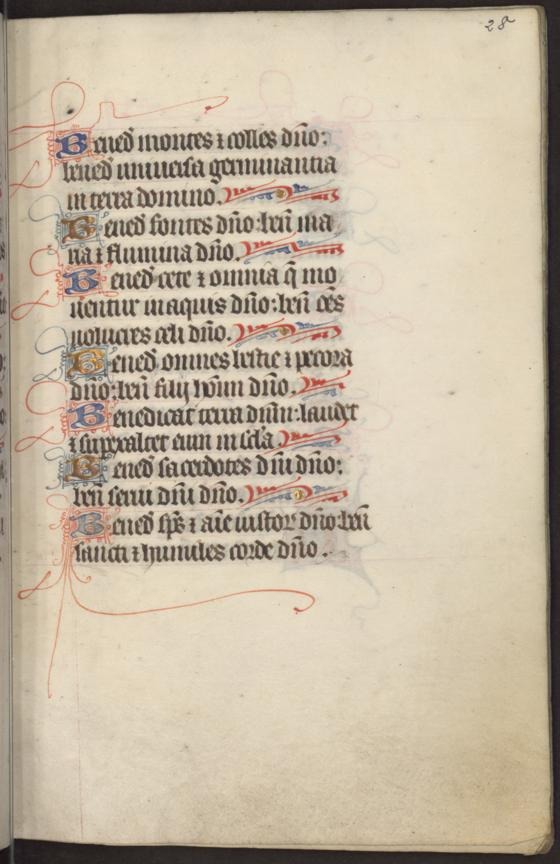 28
Bened montes ⁊ colles dño:
bened uniuersa germinantia
in terra domino.
Bened fontes dño: ben̄ ma
ria ⁊ flumina dño.
Bened cete ⁊ omnia q̄ mo
uentur in aquis dño: ben̄ oēs
uolucres celi dño.
Bened omnes bestie ⁊ pecora
dño: ben̄ filij hoīm dño.
Benedicat terra dm̄: laudet
⁊ superexaltet eum in sc̄la.
Bened sacerdotes dñi dño:
ben̄ serui dñi dño.
Bened sp̄s ⁊ aīe iustor dño: ben̄
sancti ⁊ humiles corde dño.